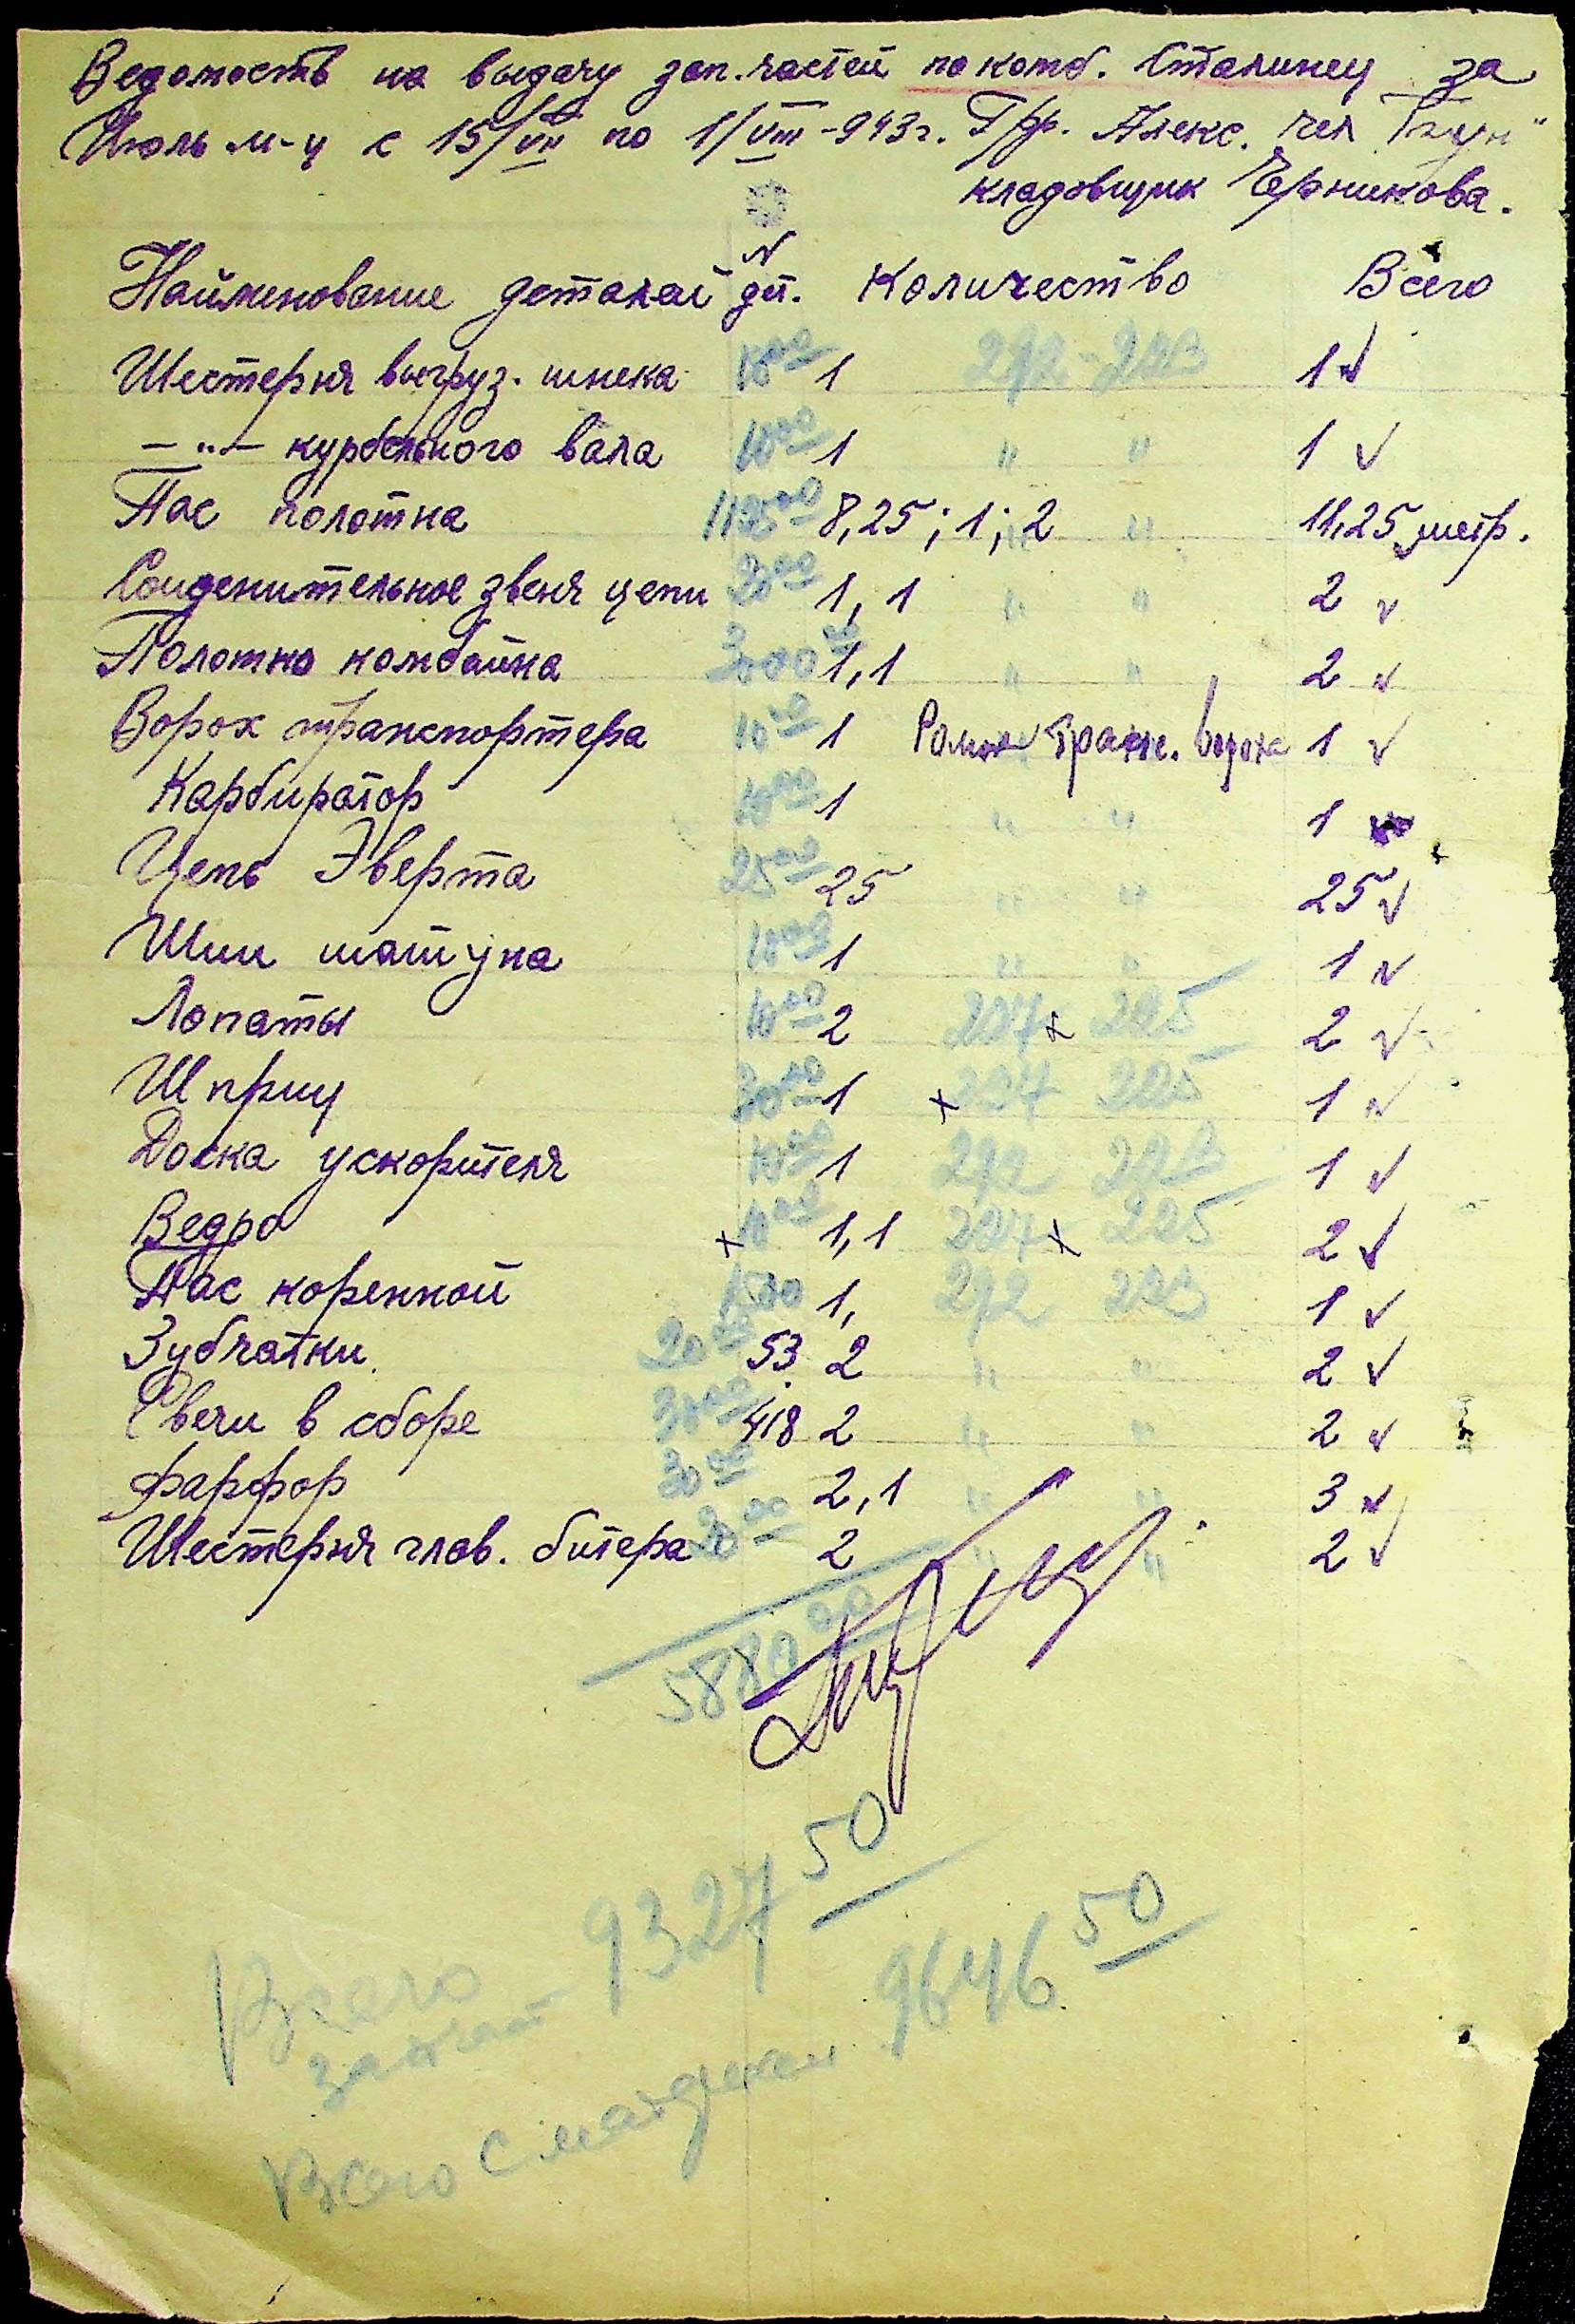 Ведомость на выдачу зап. частей по комб. Сталинец за
Июль м-ц с 15/VII по 1/VIII-943г. Алекс.
кладовщик Черникова.
Найменование деталей N дет. Количество Всего
Шестерня выгруз. шнека 1 292 223 1 ✓
— " — курбельного вала 1 " " 1 ✓
Пас полотна 8,25; 1; 2 " " 11,25 метр.
Соиденительное звеня цепи 20 00 1, 1 " " 2 ✓
Полотно комбайна 3000 00 1,1 " " 2 ✓
Ворох транспортера 10 00 1 транс. вороха 1 ✓
Карбиратор 1 " " 1 ✓
Цепь Эверта 25 00 25 " " 25 ✓
Шип шатуна 10 00 1 " " 1 ✓
Лопаты 10 00 2 x 225 2 ✓
Шприц 30 00 1 x 225 1 ✓
Доска ускорителя 10 00 1 292 223 1 ✓
Ведро x 10 00 1,1 x 225 2 ✓
Пас коренной 1, 292 223 1 ✓
Зубчатки 20 00 53. 2 " " 2 ✓
Свечи в сборе 30 00 418 2 " " 2 ✓
Фарфор 30 00 2,1 " " 3 ✓
Шестерня глав. битера 2 " " 2 ✓
5880 00
Всего 9327 50
Всего с 9646 50